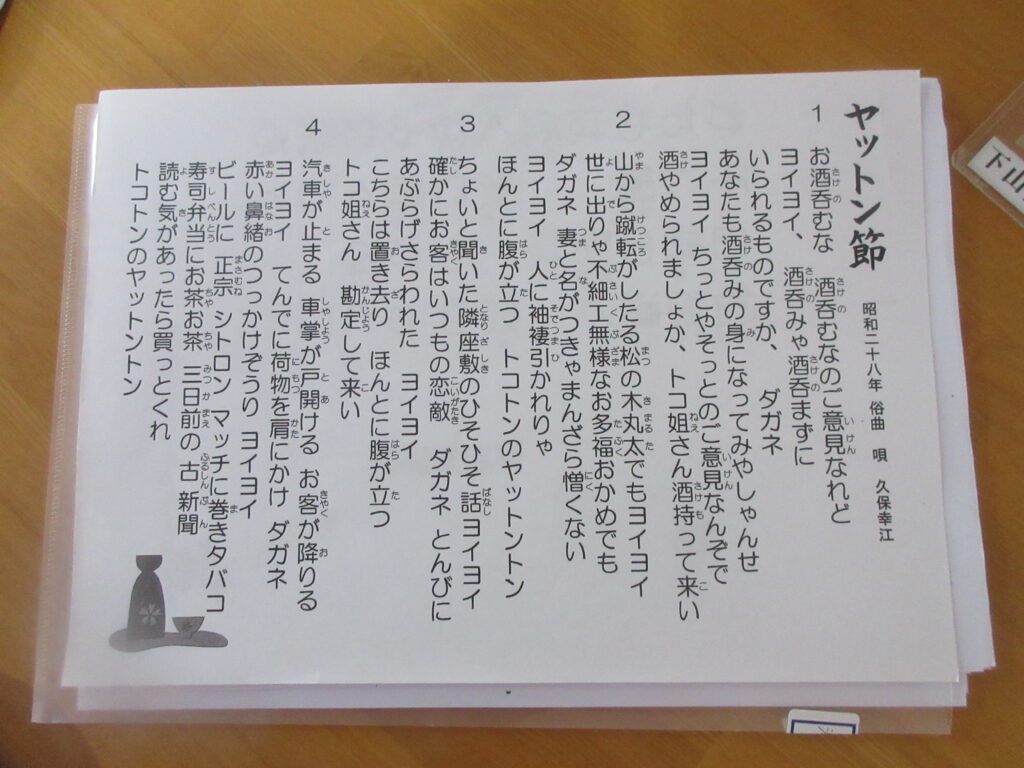 ヤットン節
昭和二十八年 俗曲 唄 久保幸江
1
お酒呑むな 酒呑むなのご意見なれど
ヨイヨイ、 酒呑みゃ酒呑まずに
いられるものですか、 ダガネ
あなたも酒呑みの身になってみやしゃんせ
ヨイヨイ ちっとやそっとのご意見なんぞで
酒やめられましょか、トコ姐さん酒持って来い
2
山から蹴転がしたる松の木丸太でもヨイヨイ
世に出りゃ不細工無様なお多福おかめでも
ダガネ 妻と名がつきゃまんざら憎くない
ヨイヨイ 人に袖褄引かれりゃ
ほんとに腹が立つ トコトンのヤットントン
3
ちょいと聞いた隣座敷のひそひそ話ヨイヨイ
確かにお客はいつもの恋敵 ダガネ とんびに
あぶらげさらわれた ヨイヨイ
こちらは置き去り ほんとに腹が立つ
トコ姐さん 勘定して来い
4
汽車が止まる 車掌が戸開ける お客が降りる
ヨイヨイ てんでに荷物を肩にかけ ダガネ
赤い鼻緒のつっかけぞうり ヨイヨイ
ビールに 正宗 シトロン マッチに巻きタバコ
寿司弁当にお茶お茶 三日前の古新聞
読む気があったら買っとくれ
トコトンのヤットントン
下山